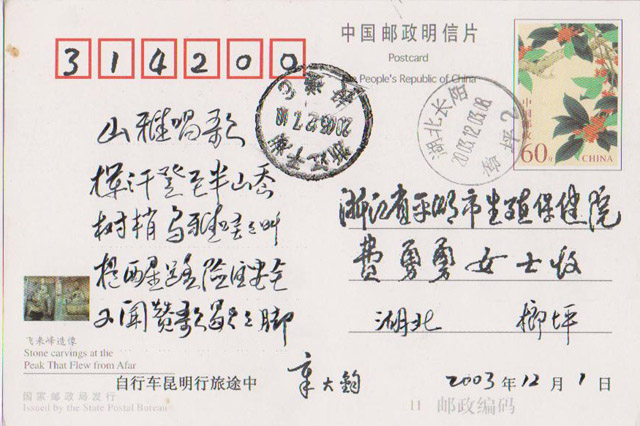 314200
中国邮政明信片
Postcard
The People's Republic of China
浙江平湖
2003.12.7.18
湖北长阳
2003.12.03.08
榔坪 2
60分
中国邮政
CHINA
山雅唱歌
挥汗登至半山岙
树梢乌雅哇哇叫
提醒路险注安全
又闻赞歌歇歇脚
浙江省平湖市生殖保健院
费勇勇女士收
湖北 榔坪
飞来峰造像
Stone carvings at the
Peak That Flew from Afar
自行车昆明行旅途中 章大钧
2003年12月1日
国家邮政局发行
Issued by the State Postal Bureau
11 邮政编码